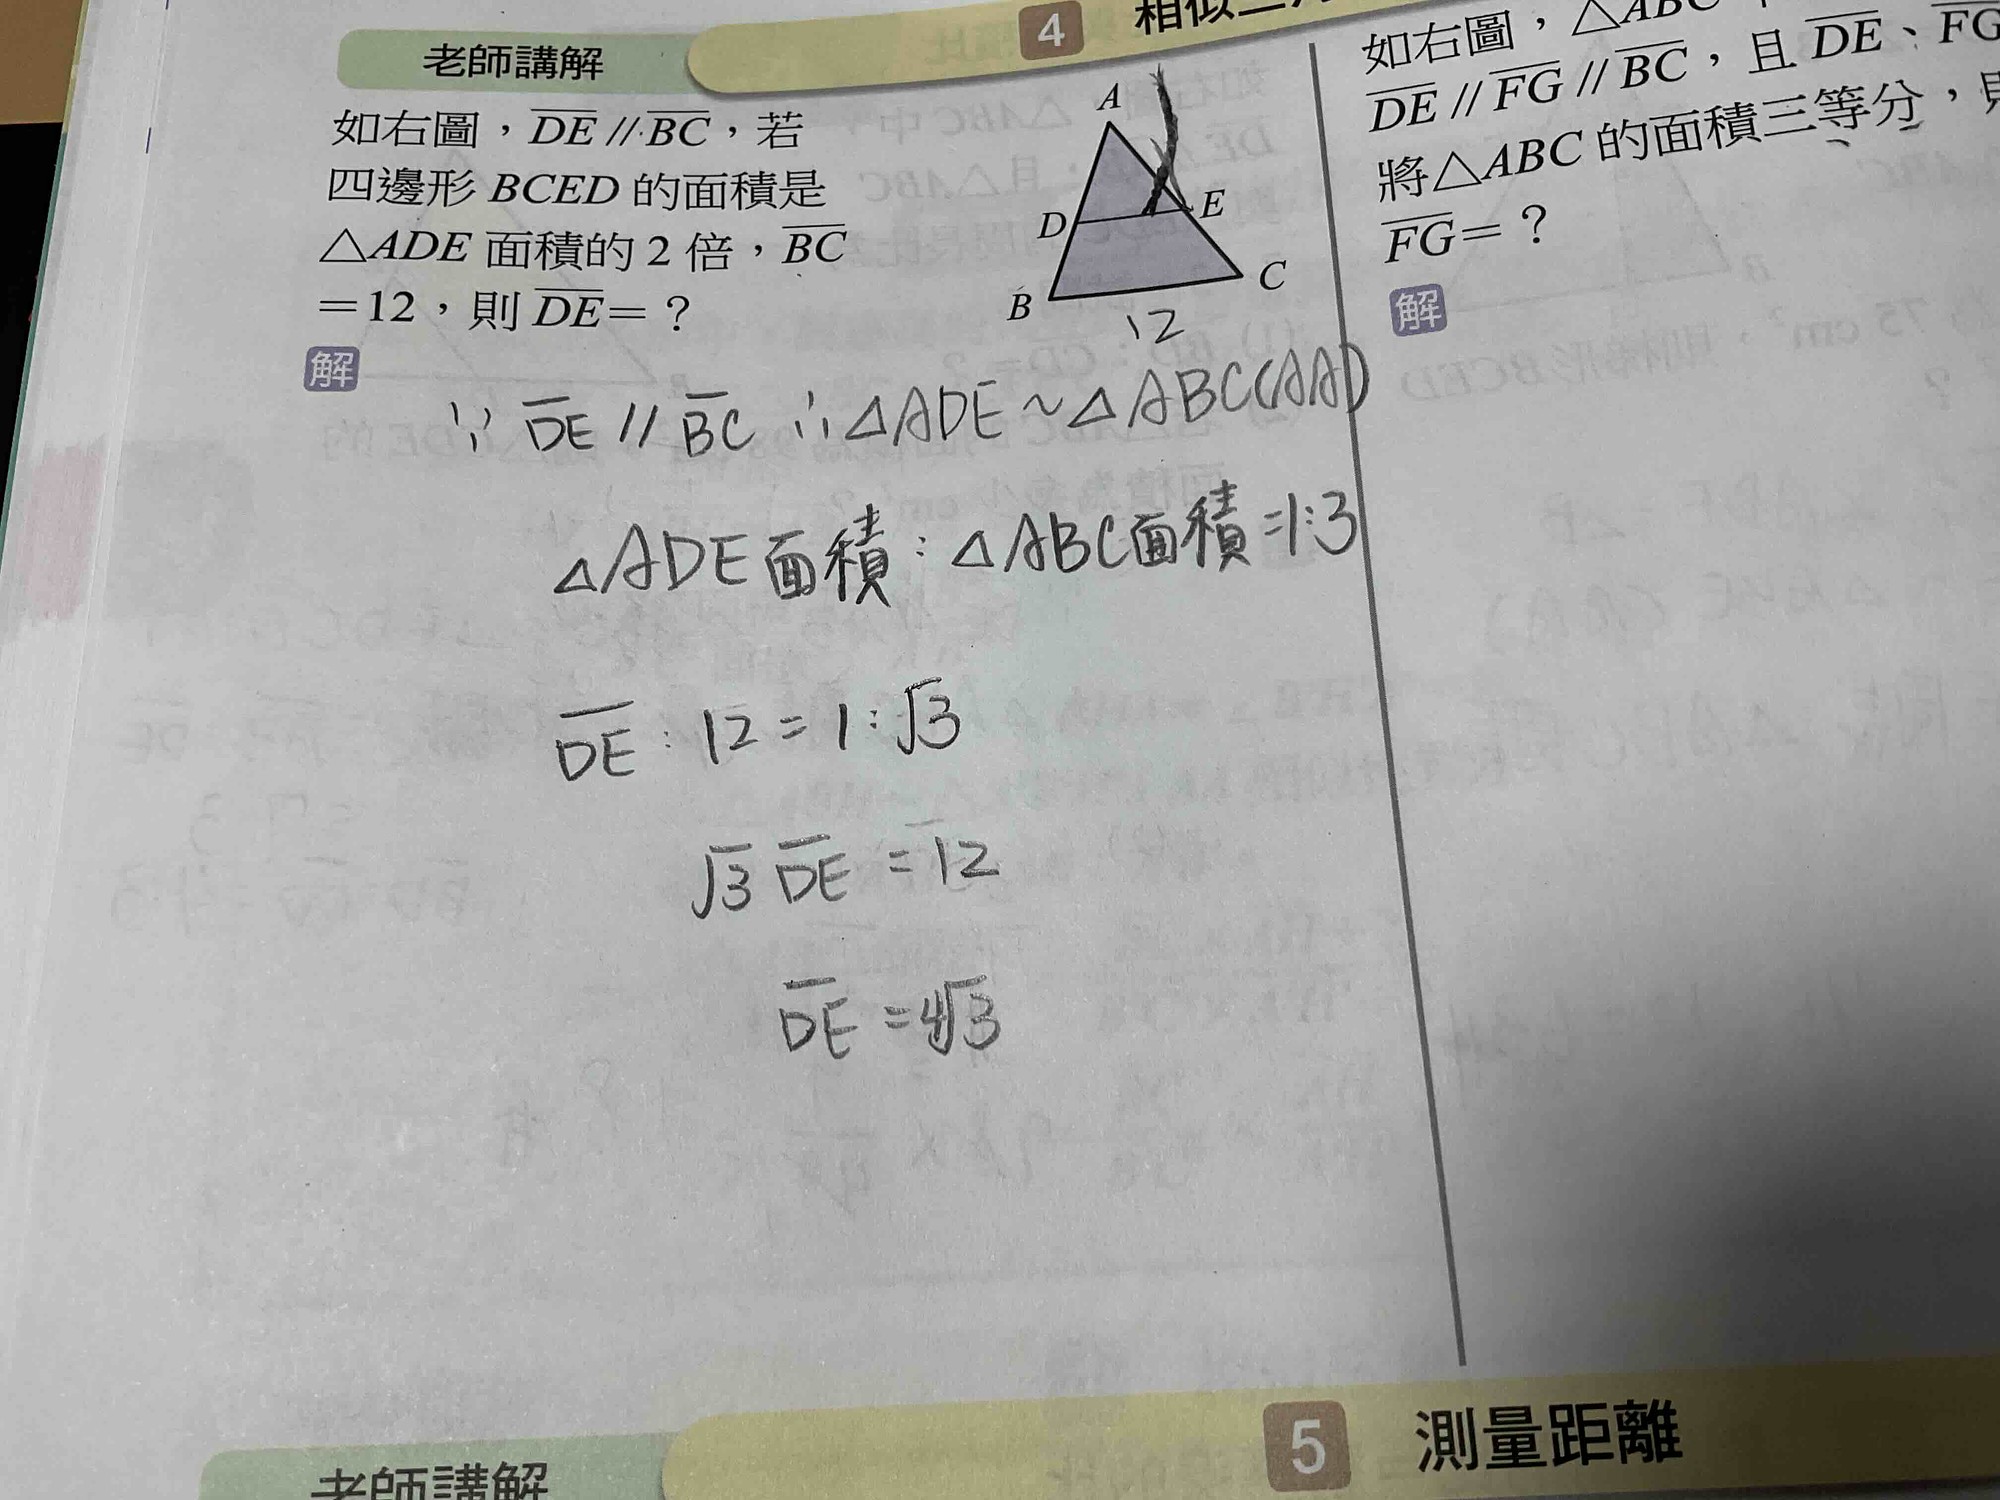 老師講解
4
如右圖，DE // BC，若
四邊形 BCED 的面積是
△ADE 面積的 2 倍，BC
=12，則 DE=？
A
D
E
B
C
12
解
∵ DE // BC ∴ △ADE ~ △ABC(AA)
△ADE面積：△ABC面積=1:3
DE : 12 = 1 : √3
√3 DE = 12
DE = 4√3
如右圖，△ABC
DE // FG // BC，且 DE、FG
將△ABC 的面積三等分，
FG=？
解
老師講解
5 測量距離